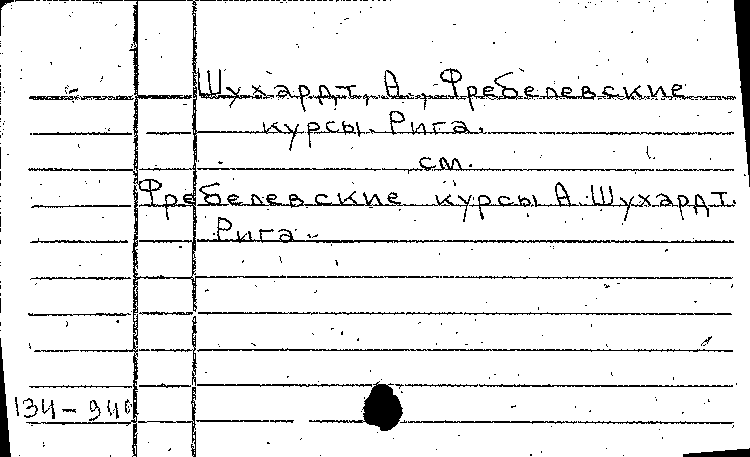 Шухардт, А., Фребелевские
курсы. Рига.
см.
Фребелевские курсы А. Шухардт.
Рига.